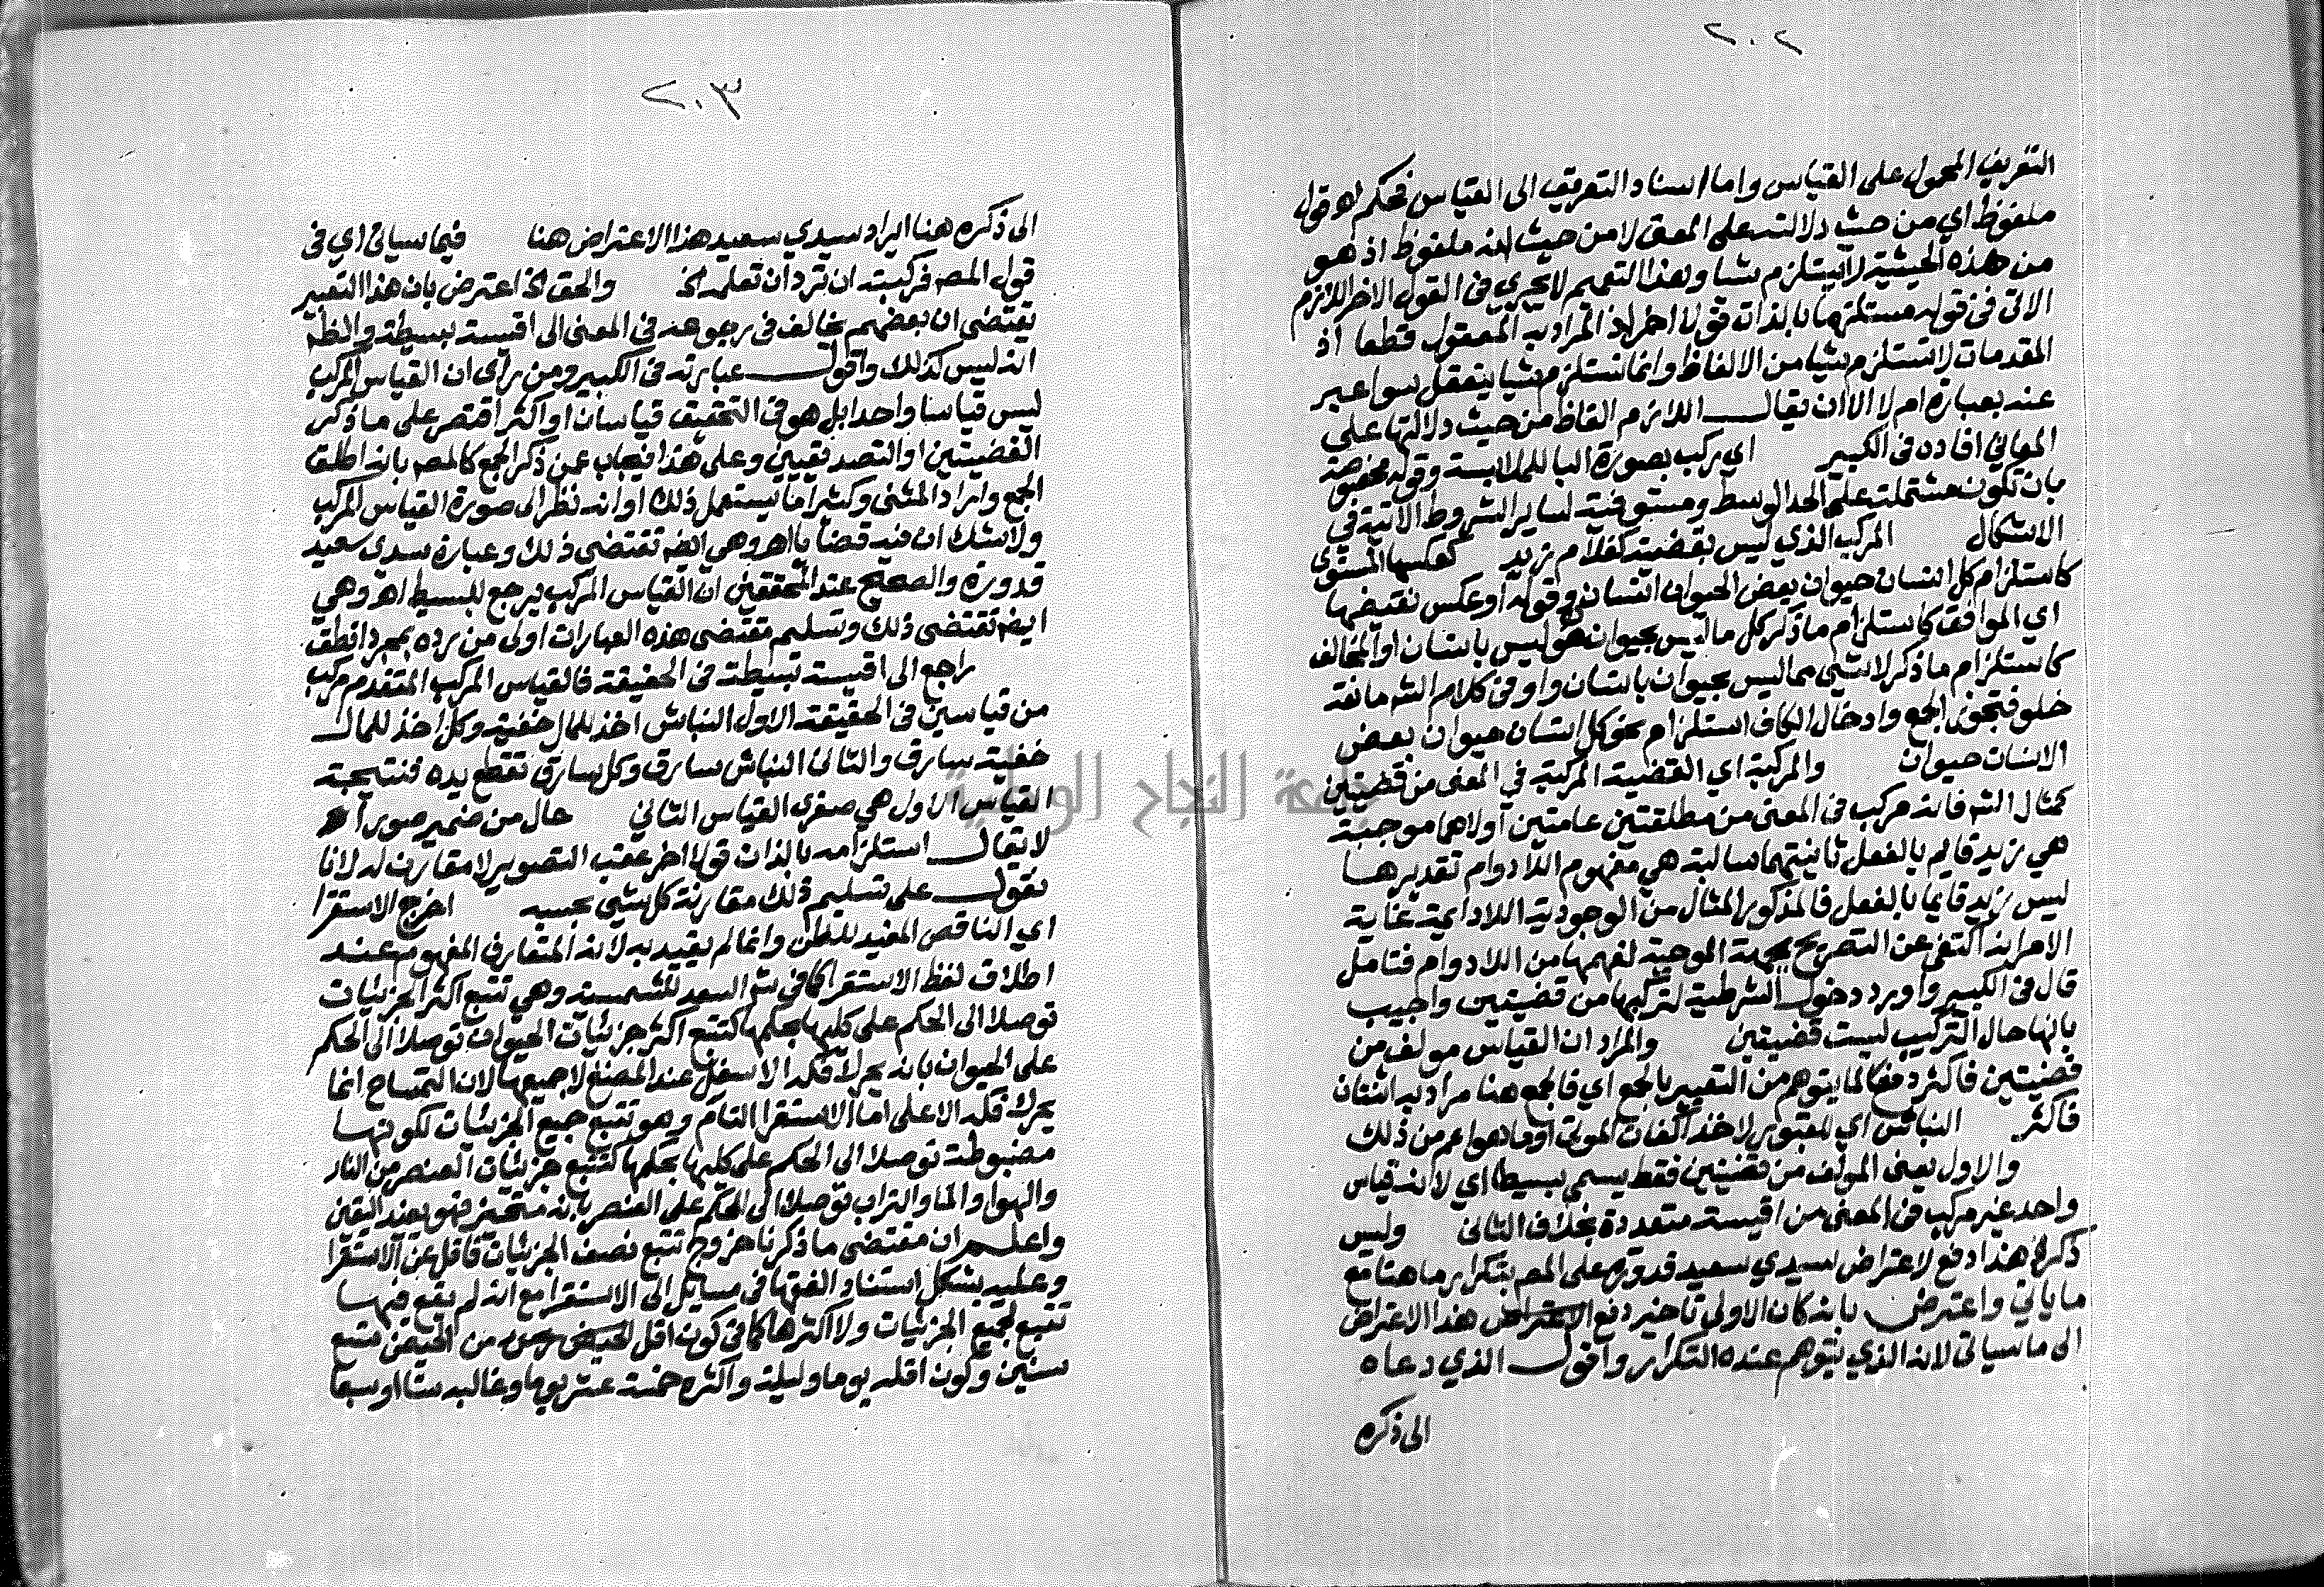 ٢٠٢
التعريف المحمول على القياس واما اسناد التعريف الى القياس فحكم اهـ قوله
ملفوظ اي من حيث دلالته على المعنى لا من حيث انه ملفوظ اذ هو
من هذه الحيثية لا يستلزم شيا وهذا التعميم لا يجري في القول الاخر اللازم
الاتي في قوله مستلزما بالذات قولا اخر اذ المراد به المعقول قطعا اذ
المقدمات لا تستلزم شيا من الالفاظ وانما تستلزم شيا يتعقل سوا عبر
عنه بعبارة ام لا الا ان يقال اللازم الفاظ من حيث دلالتها على
المعاني افاده في الكبير اي ركب بصورة البا للملابسة وقوله مخصوصة
بان تكون مشتملة على الحد الوسط ومستوفية لساير الشروط الاتية في
الاشكال المركب الذي ليس بقضية كغلام زيد كعكسها المستوى
كاستلزام كل انسان حيوان بعض الحيوان انسان وقوله او عكس نقيضها
اي الموافق كاستلزام ما ذكر كل ما ليس بحيوان هو ليس بانسان او المخالف
كاستلزام ما ذكر لا شي مما ليس بحيوان بانسان واو في كلام الشم مانعة
خلو فتجوز الجمع وادخال الكاف استلزام نحو كل انسان حيوان بعض
الانسان حيوان والمركبة اي القضية المركبة في المعنى من قضيتين
كمثال الشم فانه مركب في المعنى من مطلقتين عامتين اولاهما موجبة
هي زيد قايم بالفعل ثانيتهما سالبة هي مفهوم اللادوام تقديرها
ليس زيد قايما بالفعل فالمذكور المثال من الوجودية اللادايمة غاية
الامر انه اكتفى عن التصريح بجهة الموجبة لفهمها من اللادوام فتامل
قال في الكبير واورد دخول الشرطية لتركبها من قضيتين واجيب
بانها حال التركيب ليست قضيتين والمراد ان القياس مولف من
قضيتين فاكثر دفعا لما يتوهم من التعبير بالجمع اي فالجمع هنا مراد به اثنتان
فاكثر النباش اي للقبور لاخذ اكفان الموتى او ما هو اعم من ذلك
والاول يعنى المولف من قضيتين فقط يسمى بسيطا اي لانه قياس
واحد غير مركب في المعنى من اقيسة متعددة بخلاف الثاني وليس
ذكر هذا دفع لاعتراض سيدي سعيد قدورة على المص بتكرار ما هنا مع
ما ياتي واعترض بانه كان الاولى تاخير دفع الاعتراض هذا الاعتراض
الى ما سياتي لانه الذي يتوهم عنده التكرار واقول الذي دعاه
الى ذكره
٢٠٣
الى ذكره هنا ايراد سيدي سعيد هذا الاعتراض هنا فيما سياتي اي في
قول المصم فركبنه ان ترد ان تعلمه الخ والحق الخ اعترض بان هذا التعبير
يقتضى ان بعضهم يخالف في رجوعه في المعنى الى اقيسة بسيطة والظم
انه ليس كذلك واقول عبارته في الكبير ومن راى ان القياس المركب
ليس قياسا واحدا بل هو في التحقيق قياسان او اكثر اقتصر على ما ذكر
القضيتين او التصديقيين وعلى هذا فيجاب عن ذكر الجمع كالمصم بانه اطلق
الجمع واراد المثنى وكثيرا ما يستعمل ذلك او انه نظر الى صورة القياس المركب
ولا شك ان فيه قضايا اهـ وهي ايضم تقتضى ذلك وعبارة سيدى سعيد
قدورة والصحيح عند المحققين ان القياس المركب يرجع للبسيط اهـ وهي
ايضم تقتضى ذلك وتسليم مقتضى هذه العبارات اولى من رده بمجرد
راجع الى اقيسة بسيطة في الحقيقة فالقياس المركب المتقدم مركب
من قياسين في الحقيقة الاول النباش اخذ للمال خفية وكل اخذ للمال
خفية سارق والثاني النباش سارق وكل سارق تقطع يده فنتيجة
القياس الاول هي صغرى القياس الثاني حال من ضمير صورا
لا يقال استلزامه بالذات قولا اخر عقب التصوير لا مقارن له لانا
نقول على تسليم ذلك مقارنة كل شي بحسبه اخرج الاستقرا
اي الناقص المفيد للظن وانما لم يقيد به لانه المتعارف المفهوم عند
اطلاق لفظ الاستقرا كما في شم السعد للشمسية وهي تتبع اكثر الجزئيات
توصلا الى الحكم على كليها بحكمها كتتبع اكثر جزئيات الحيوان توصلا الى الحكم
على الحيوان بانه يحرك فكه الاسفل عند المضغ لا جميعها لان التمساح انما
يحرك فكه الاعلى اما الاستقرا التام وهو تتبع جميع الجزئيات لكونها
مضبوطة توصلا الى الحكم على كليها بحكمها كتتبع جزئيات العنصر من النار
والهوا والما والتراب توصلا الى الحكم على العنصر بانه متحيز فهو يفيد اليقين
واعلم ان مقتضى ما ذكرنا خروج تتبع نصف الجزئيات فاقل عن الاستقرا
وعليه يشكل استناد الفقها في مسايل الى الاستقرا مع انه لم يقع فيها
تتبع لجميع الجزئيات ولا اكثرها كما في كون اقل من الحيض تسع
سنين وكون اقله يوما وليلة واكثره خمسة عشر يوما وغالبه ستا او سبعا
جامعة النجاح الوطنية